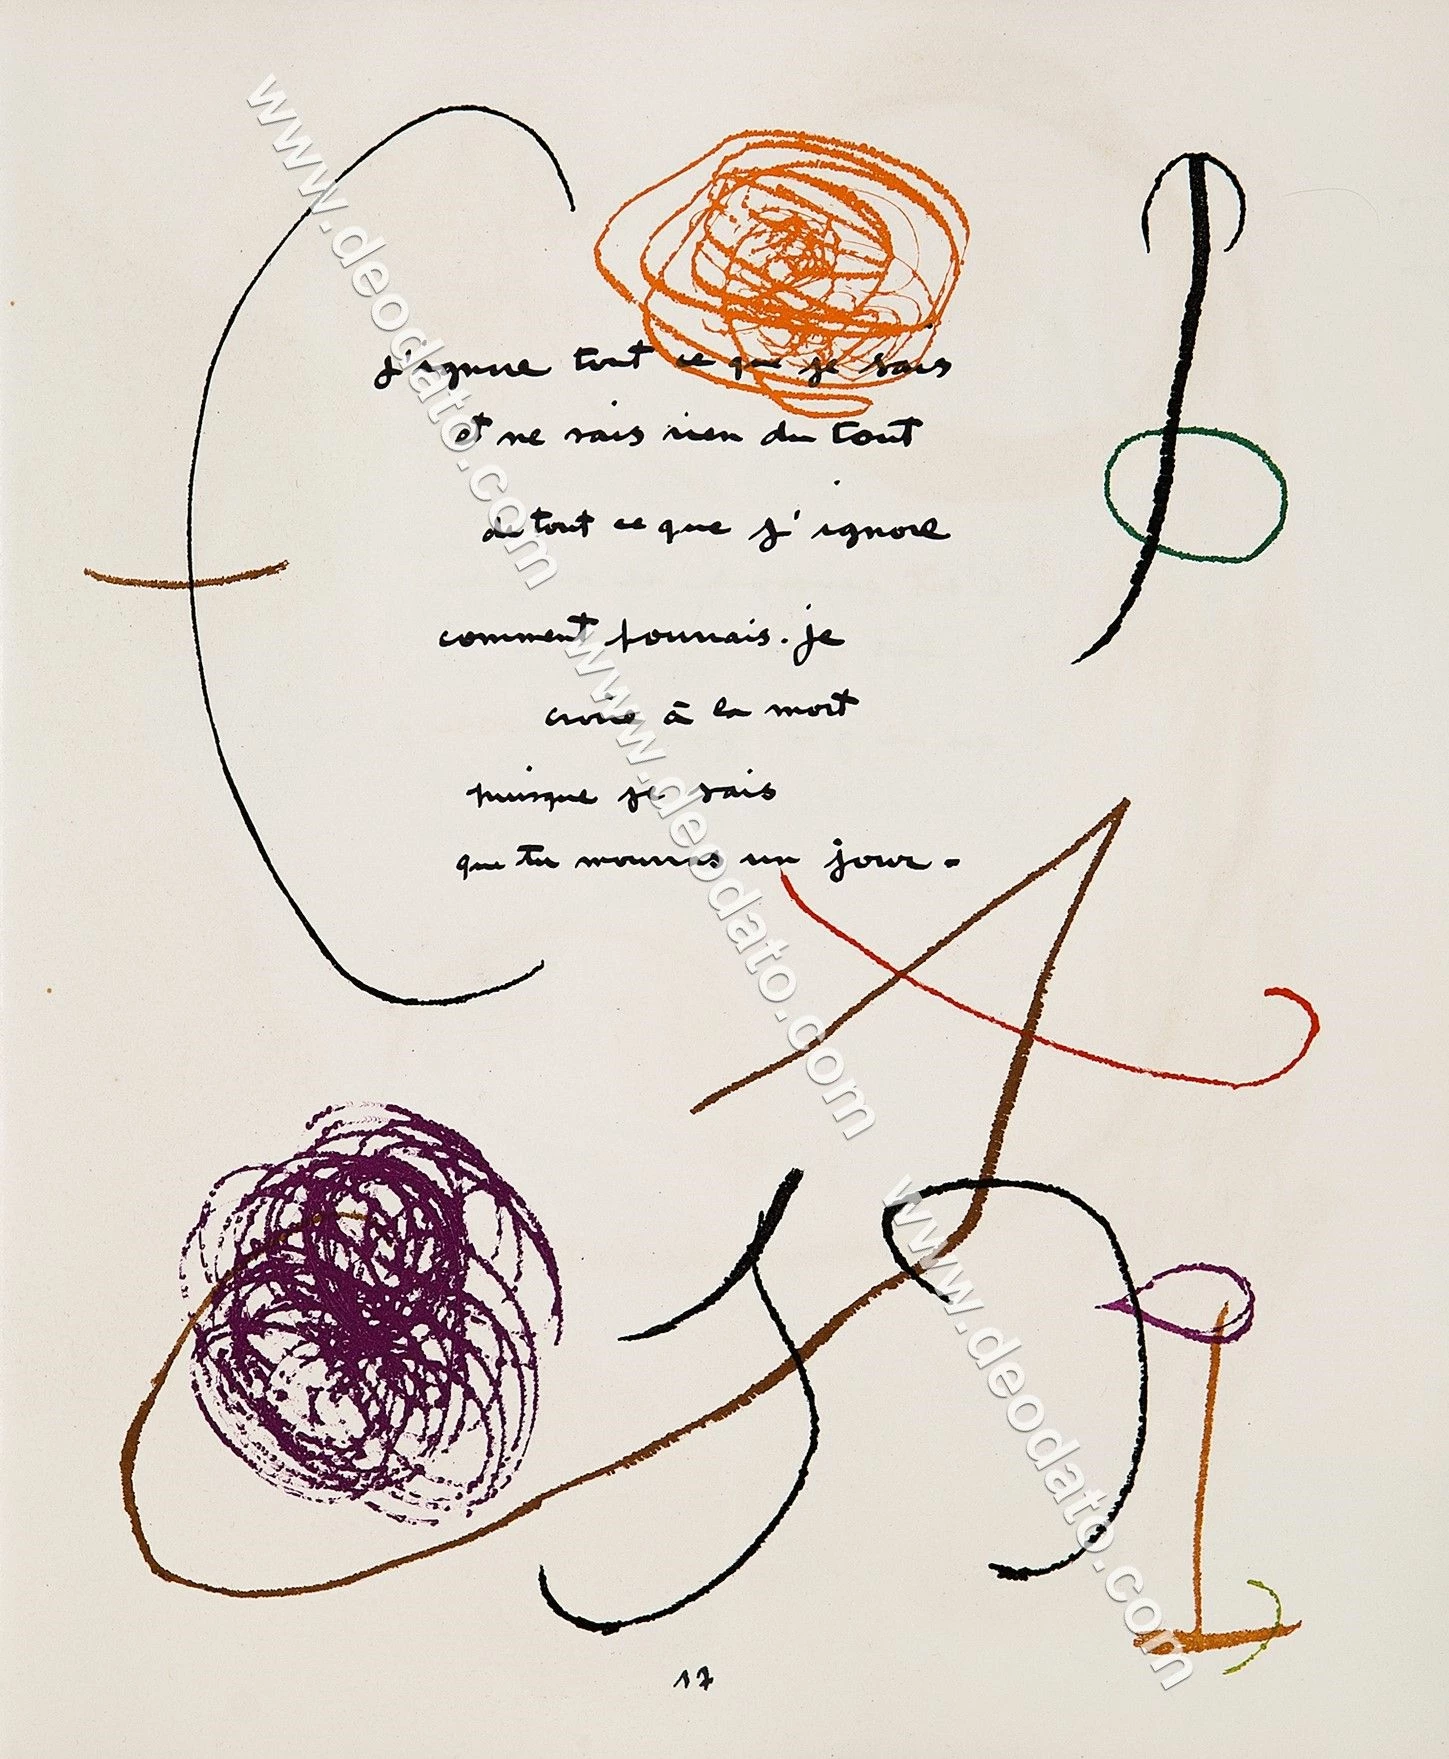 j'ignore tout ce que je sais
et ne sais rien du tout
de tout ce que j'ignore
comment pourrais-je
croire à la mort
puisque je sais
que tu mourras un jour.
17
www.deodato.com
www.deodato.com
www.deodato.com